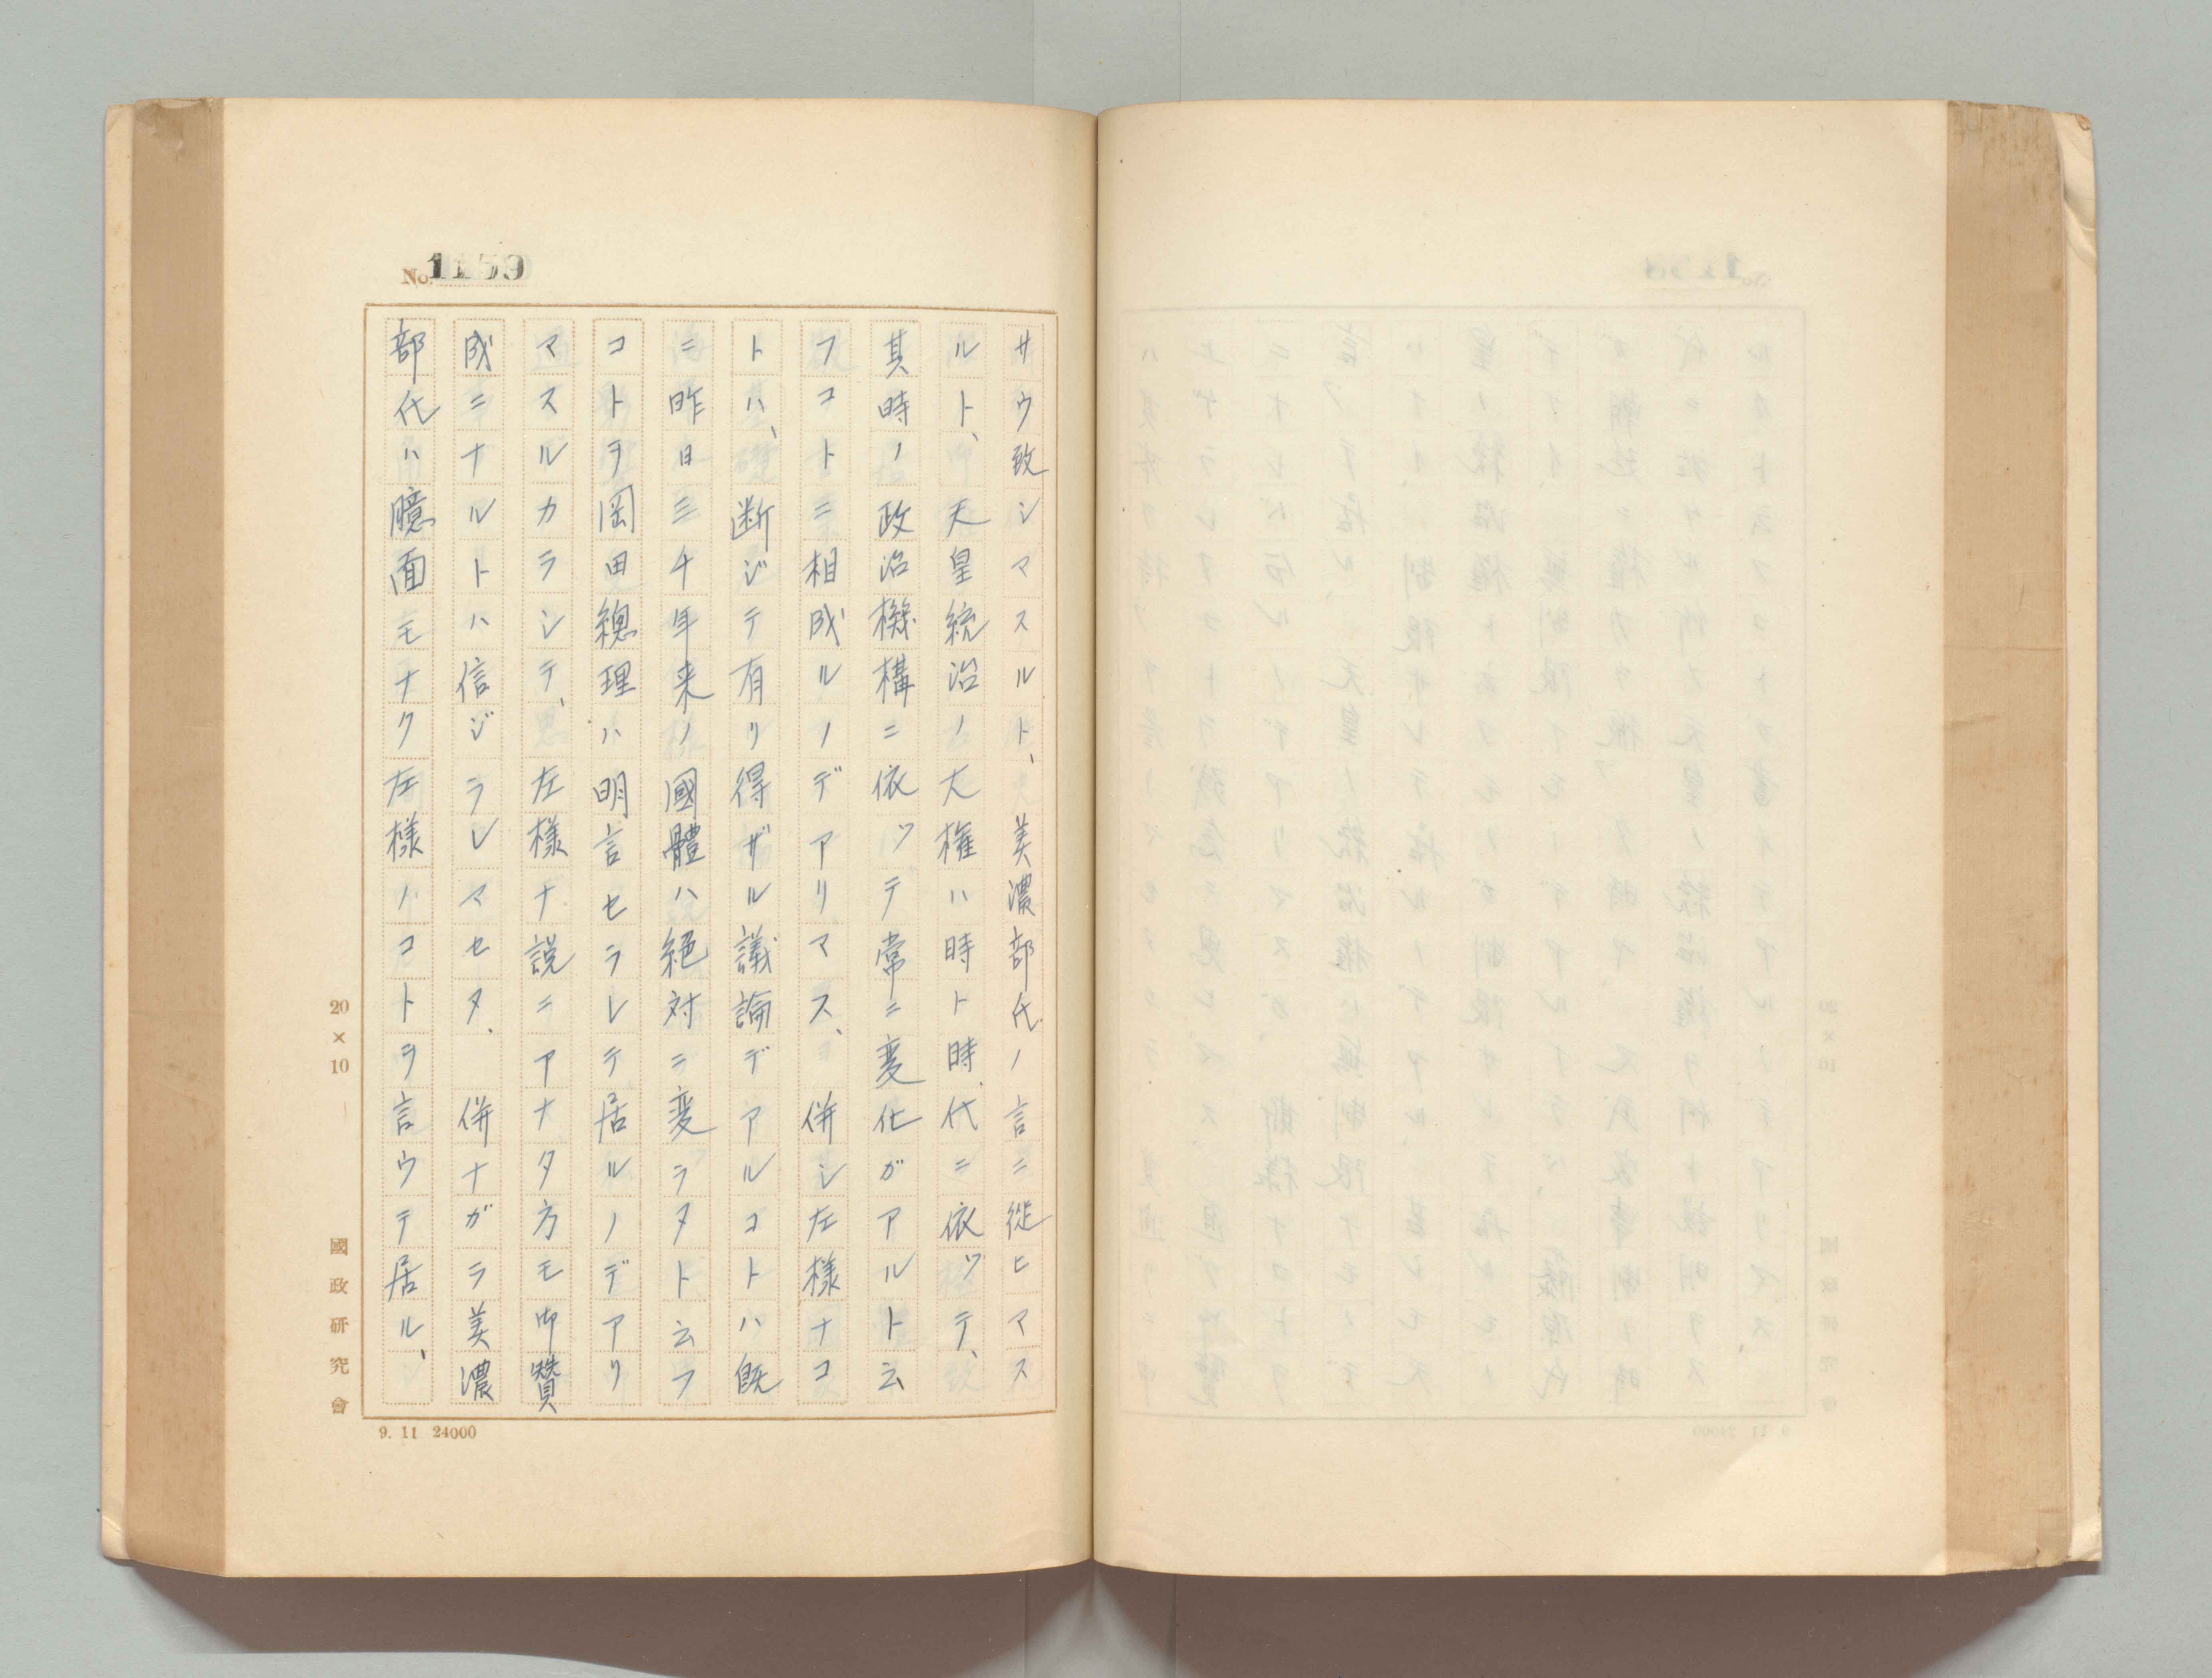 No. 1159
サウ致シマスルト、美濃部氏ノ言ニ従ヒマス
ルト、天皇統治ノ大権ハ時ト時代ニ依ッテ、
其時ノ政治機構ニ依ッテ常ニ変化ガアルト云
フコトニ相成ルノデアリマス、併シ左様ナコ
トハ、断ジテ有リ得ザル議論デアルコトハ既
ニ昨日三千年来ノ國體ハ絶対ニ変ラヌト云フ
コトヲ岡田總理ハ明言セラレテ居ルノデアリ
マスルカラシテ、左様ナ説ニアナタ方モ御賛
成ニナルトハ信ジラレマセヌ、併ナガラ美濃
部氏ハ臆面モナク左様ノコトヲ言ウテ居ル、
20×10
國政研究會
9. 11 24000